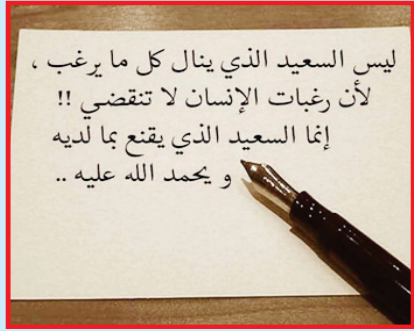 ليس السعيد الذي ينال كل ما يرغب ،
لأن رغبات الإنسان لا تنقضي !!
إنما السعيد الذي يقنع بما لديه
و يحمد الله عليه ..